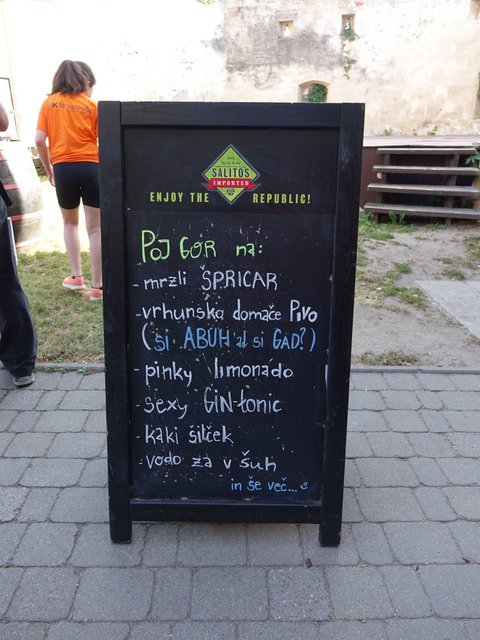 SALITOS
IMPORTED
ENJOY THE REPUBLIC!
POJ GOR na:
- mrzli ŠPRICAR
- vrhunsko domače PIVO
(si ABUH al si GAD?)
- pinky limonado
- sexy GIN-tonic
- kaki šilček
- vodo za v šuh
in še več...